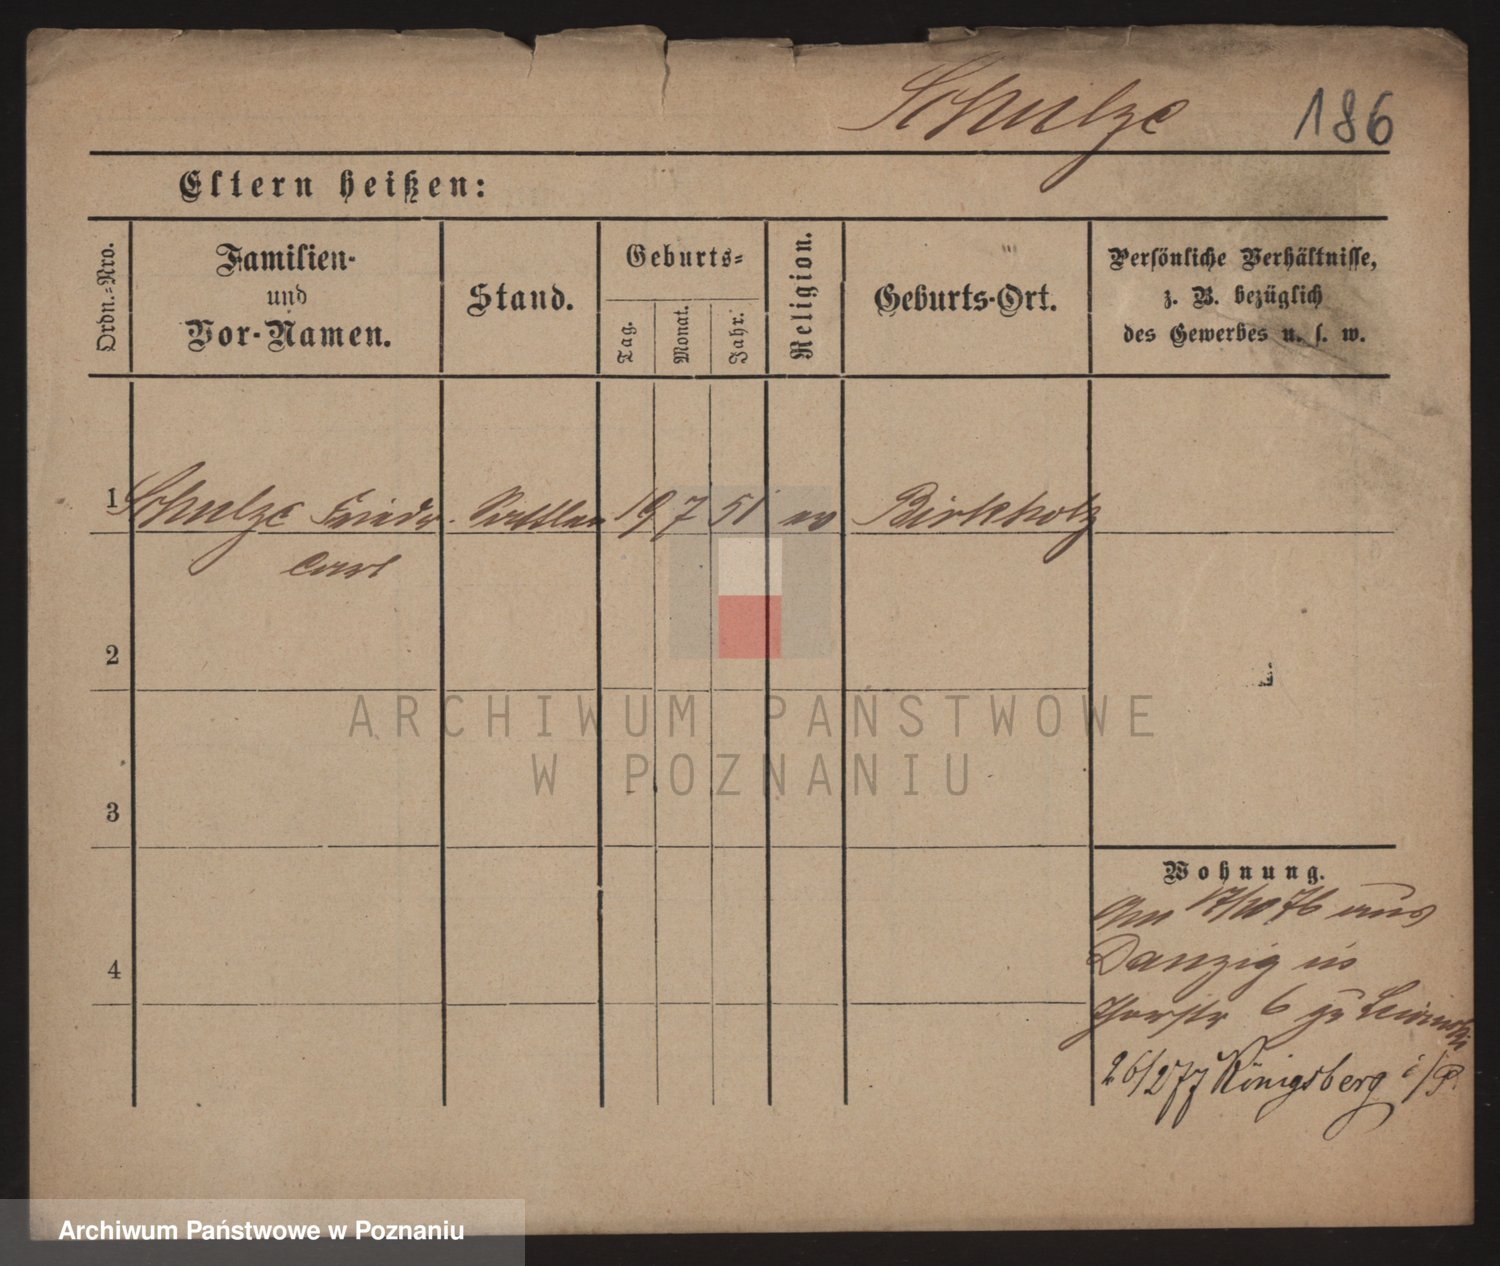 Schulze 186
Eltern heißen:
Ordn.-Nro.
Familien-
und
Vor-Namen.
Stand.
Geburts-
Tag.
Monat.
Jahr.
Religion.
Geburts-Ort.
Persönliche Verhältnisse,
z. B. bezüglich
des Gewerbes u. s. w.
1 Schulze Friedr. 19 7 51 ev Birkholz
Carl
2
3
4
ARCHIWUM PAŃSTWOWE
W POZNANIU
Wohnung.
17/10 76 aus
Danzig in
6 zu
26/2 77 Königsberg i/P.
Archiwum Państwowe w Poznaniu